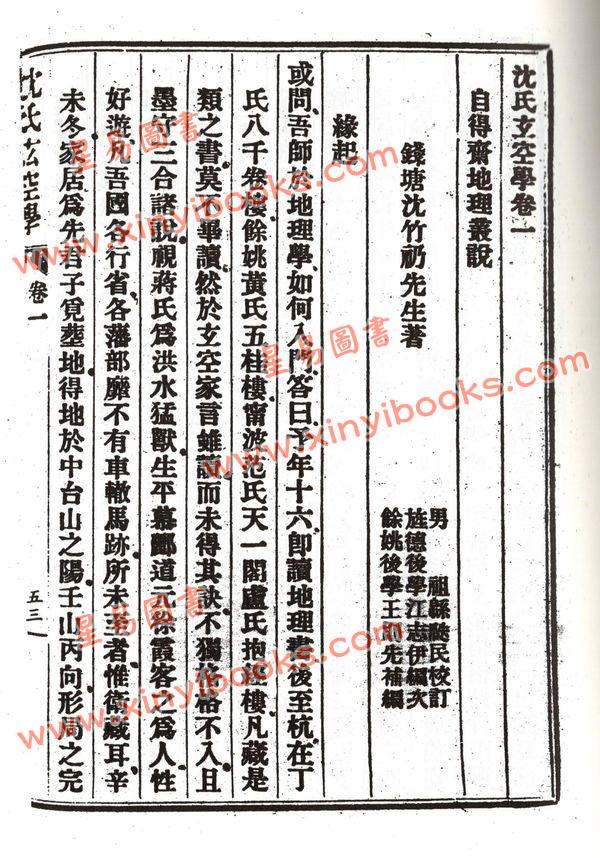 沈氏玄空學卷一
自得齋地理叢說
錢塘沈竹礽先生著
男 祖緜瓞民校訂
旌德後學江志伊編次
餘姚後學王則先補編
緣起
或問、吾師於地理學、如何入門、答曰、予年十六、卽讀地理書、後至杭、在丁
氏八千卷樓、餘姚黃氏五桂樓、甯波范氏天一閣、盧氏抱經樓、凡藏是
類之書、莫不畢讀、然於玄空家言、雖讀而未得其訣、不獨格格不入、且
墨守三合諸說、視蔣氏爲洪水猛獸、生平慕酈道元徐霞客之爲人、性
好遊、凡吾國各行省、各藩部、靡不有車轍馬跡、所未至者、惟衛藏耳、辛
未冬家居、爲先君子覓塟地、得地於中台山之陽、壬山丙向、形局之完
沈氏玄空學 卷一 五三
皇易圖書
www.xinyibooks.com
皇易圖書
www.xinyibooks.com
皇易圖書
www.xinyibooks.com